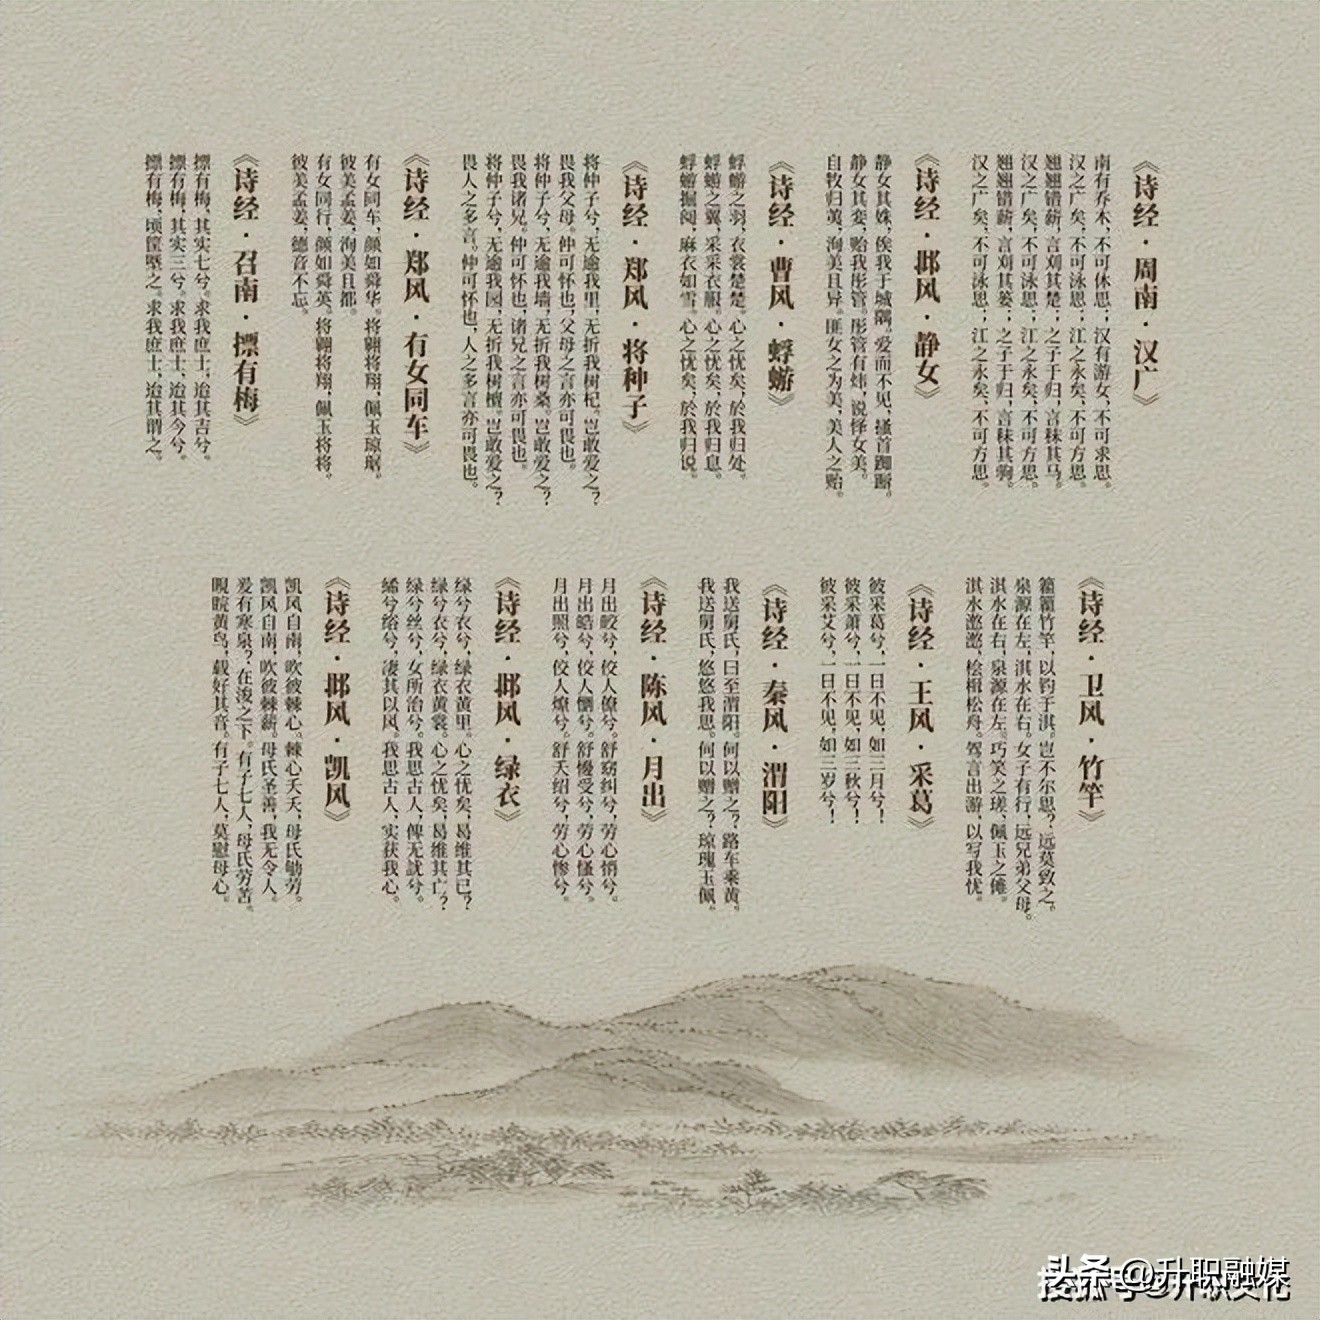 《诗经·周南·汉广》
南有乔木，不可休思；汉有游女，不可求思。
汉之广矣，不可泳思；江之永矣，不可方思。
翘翘错薪，言刈其楚；之子于归，言秣其马。
汉之广矣，不可泳思；江之永矣，不可方思。
翘翘错薪，言刈其蒌；之子于归，言秣其驹。
汉之广矣，不可泳思；江之永矣，不可方思。
《诗经·邶风·静女》
静女其姝，俟我于城隅。爱而不见，搔首踟蹰。
静女其娈，贻我彤管。彤管有炜，说怿女美。
自牧归荑，洵美且异。匪女之为美，美人之贻。
《诗经·曹风·蜉蝣》
蜉蝣之羽，衣裳楚楚。心之忧矣，於我归处。
蜉蝣之翼，采采衣服。心之忧矣，於我归息。
蜉蝣掘阅，麻衣如雪。心之忧矣，於我归说。
《诗经·郑风·将种子》
将仲子兮，无逾我里，无折我树杞。岂敢爱之？
畏我父母。仲可怀也，父母之言亦可畏也。
将仲子兮，无逾我墙，无折我树桑。岂敢爱之？
畏我诸兄。仲可怀也，诸兄之言亦可畏也。
将仲子兮，无逾我园，无折我树檀。岂敢爱之？
畏人之多言。仲可怀也，人之多言亦可畏也。
《诗经·郑风·有女同车》
有女同车，颜如舜华。将翱将翔，佩玉琼琚。
彼美孟姜，洵美且都。
有女同行，颜如舜英。将翱将翔，佩玉将将。
彼美孟姜，德音不忘。
《诗经·召南·摽有梅》
摽有梅，其实七兮。求我庶士，迨其吉兮。
摽有梅，其实三兮。求我庶士，迨其今兮。
摽有梅，顷筐塈之。求我庶士，迨其谓之。
《诗经·卫风·竹竿》
籊籊竹竿，以钓于淇。岂不尔思？远莫致之。
泉源在左，淇水在右。女子有行，远兄弟父母。
淇水在右，泉源在左。巧笑之瑳，佩玉之傩。
淇水滺滺，桧楫松舟。驾言出游，以写我忧。
《诗经·王风·采葛》
彼采葛兮，一日不见，如三月兮！
彼采萧兮，一日不见，如三秋兮！
彼采艾兮，一日不见，如三岁兮！
《诗经·秦风·渭阳》
我送舅氏，曰至渭阳。何以赠之？路车乘黄。
我送舅氏，悠悠我思。何以赠之？琼瑰玉佩。
《诗经·陈风·月出》
月出皎兮，佼人僚兮。舒窈纠兮，劳心悄兮。
月出皓兮，佼人懰兮。舒忧受兮，劳心慅兮。
月出照兮，佼人燎兮。舒夭绍兮，劳心惨兮。
《诗经·邶风·绿衣》
绿兮衣兮，绿衣黄里。心之忧矣，曷维其已？
绿兮衣兮，绿衣黄裳。心之忧矣，曷维其亡？
绿兮丝兮，女所治兮。我思古人，俾无訧兮。
絺兮绤兮，凄其以风。我思古人，实获我心。
《诗经·邶风·凯风》
凯风自南，吹彼棘心。棘心夭夭，母氏劬劳。
凯风自南，吹彼棘薪。母氏圣善，我无令人。
爰有寒泉？在浚之下。有子七人，母氏劳苦。
睍睆黄鸟，载好其音。有子七人，莫慰母心。
头条@升职融媒